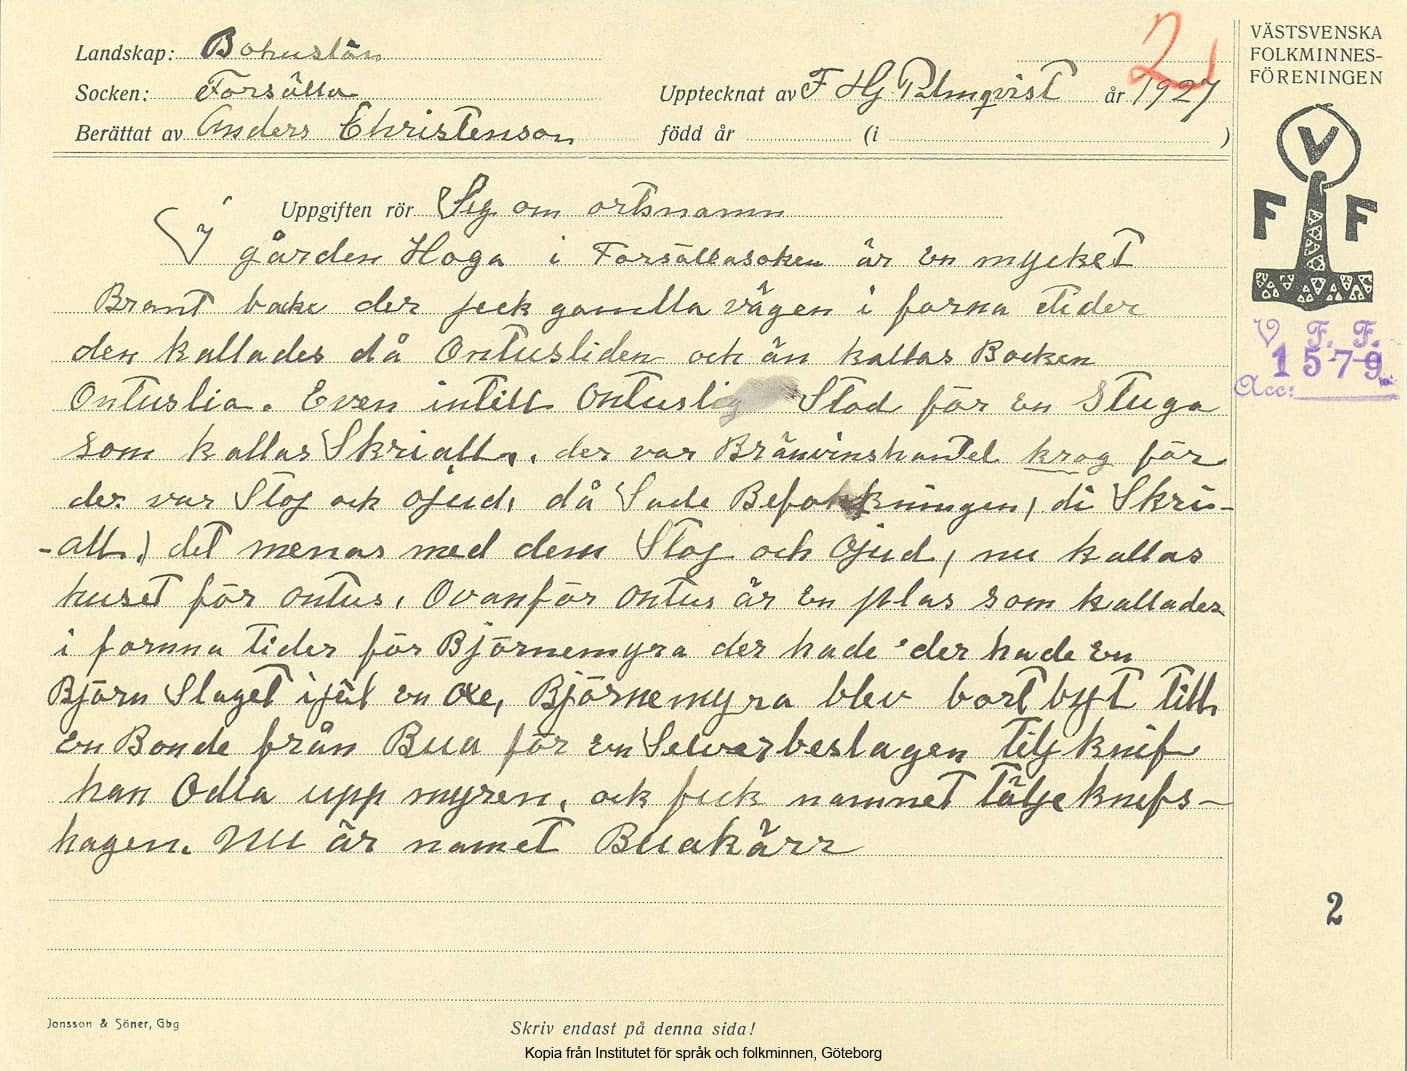 Landskap: Bohuslän
Socken: Forsälla
Berättat av Anders Christenson
Upptecknat av F Hj. Palmqvist år 1927
född år (i )
2
VÄSTSVENSKA
FOLKMINNES-
FÖRENINGEN
V
F F
V. F. F.
1579
Acc:
Uppgiften rör Seg om ortsnamn
I gården Hoga i Forsällasoken är en mycket
Brant backe der jeck gamlla vägen i forna tider
den kallades då Ontusliden och än kallas Backen
Ontuslia. Even intill Ontuslig Stod för en Stuga
som kallas Skriall, der var Bränvinshantel krog för
der var Stoj ock ojud, då Sade Befolkningen, di Skri-
-all, det menas med dem Stoj och Ojud, nu kallas
huset för ontus, Ovanför ontus är en plas som kallades
i fornna tider för Björnemyra der hade der hade en
Björn Slaget ijäl en oxe, Björnemyra blev bort byt till
en Bonde från Bua för en Selverbeslagen teljknif
han Odla upp myren, ock feck namnet täljeknifs-
hagen. Nu är namet Buakärr
2
Jonsson & Söner, Gbg
Skriv endast på denna sida!
Kopia från Institutet för språk och folkminnen, Göteborg